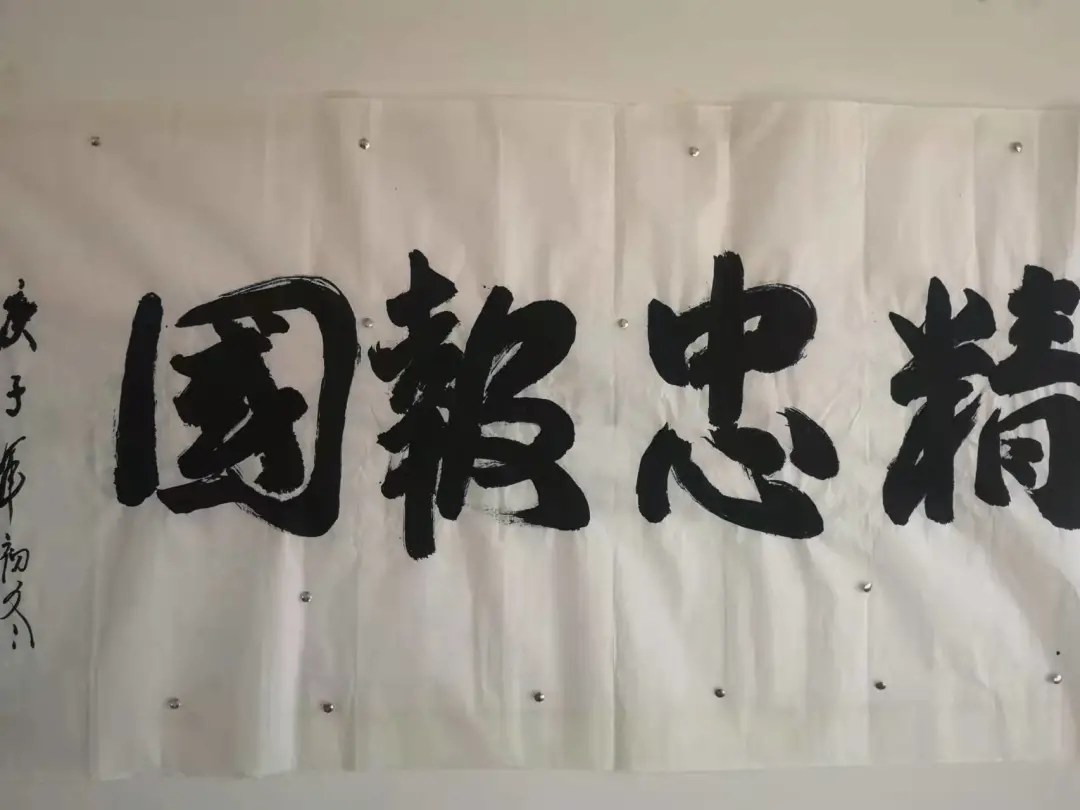 精忠報國
庚子年初冬